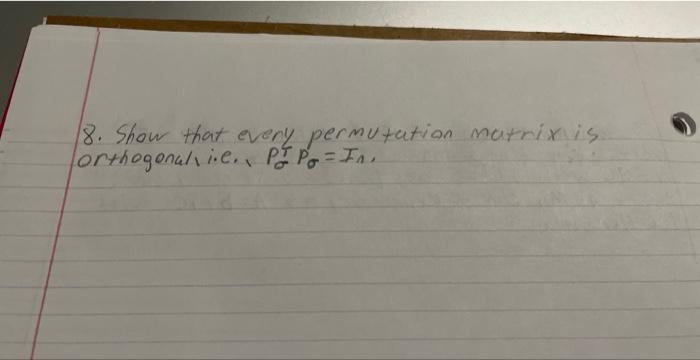 8. Show that every permutation matrix is
orthogonal, i.e., PσᵀPσ = Iₙ.